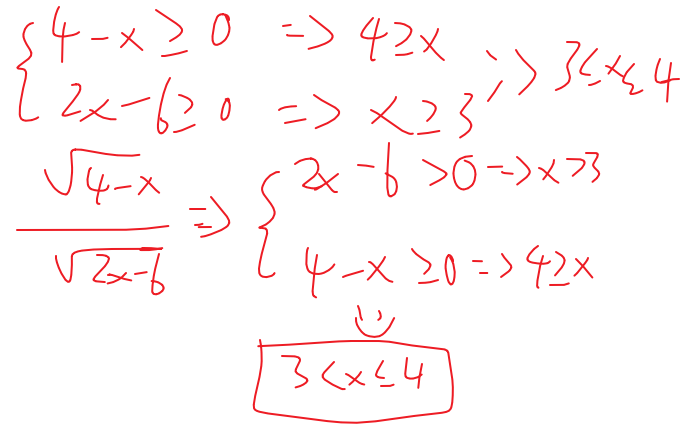 { 4-x≥0 => 4≥x
2x-6≥0 => x≥3 => 3≤x≤4
√4-x / √2x-6 => { 2x-6>0 => x>3
4-x≥0 => 4≥x
3<x≤4